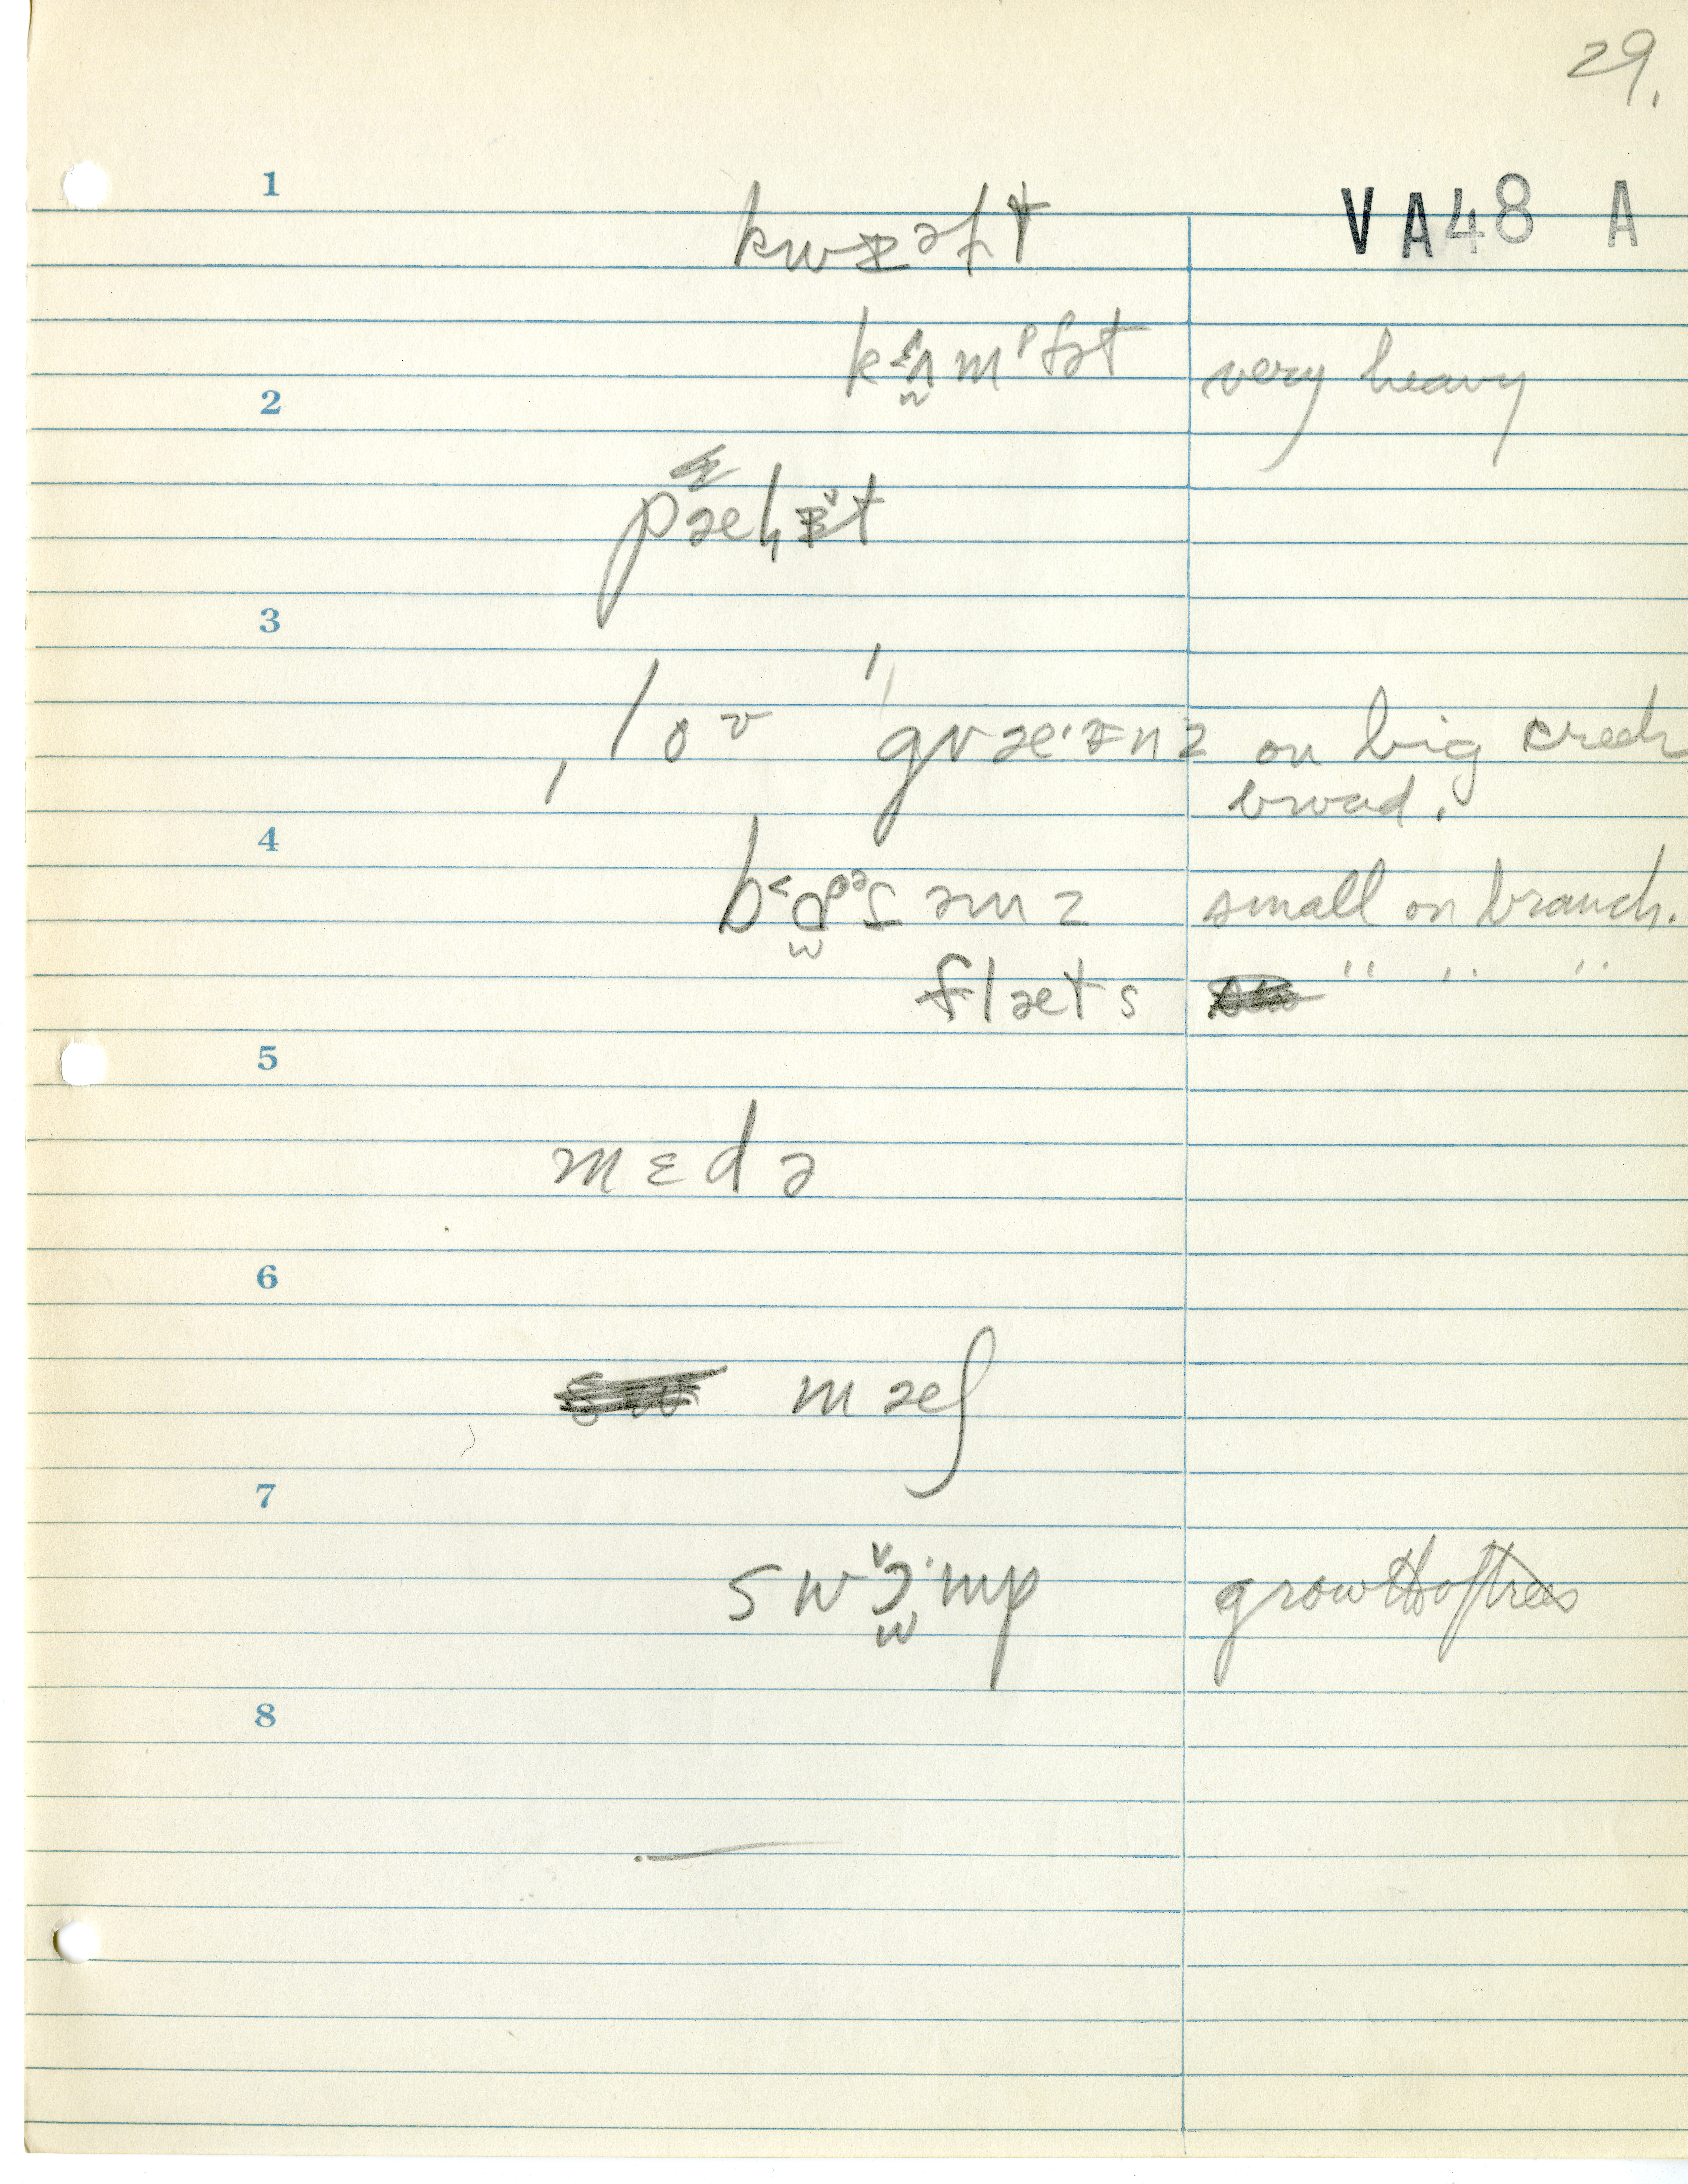 29.
1
VA48 A
kwɪəlt
kɛʌmᵖfət very heavy
2
pæłɪ̌t
3
ˌloʊ ˈgræ·ɪnz on big creek
broad.
4
small on branch.
flæts " " "
5
mɛdə
6
mæʃ
7
swɔ̌·mp growth of trees
8